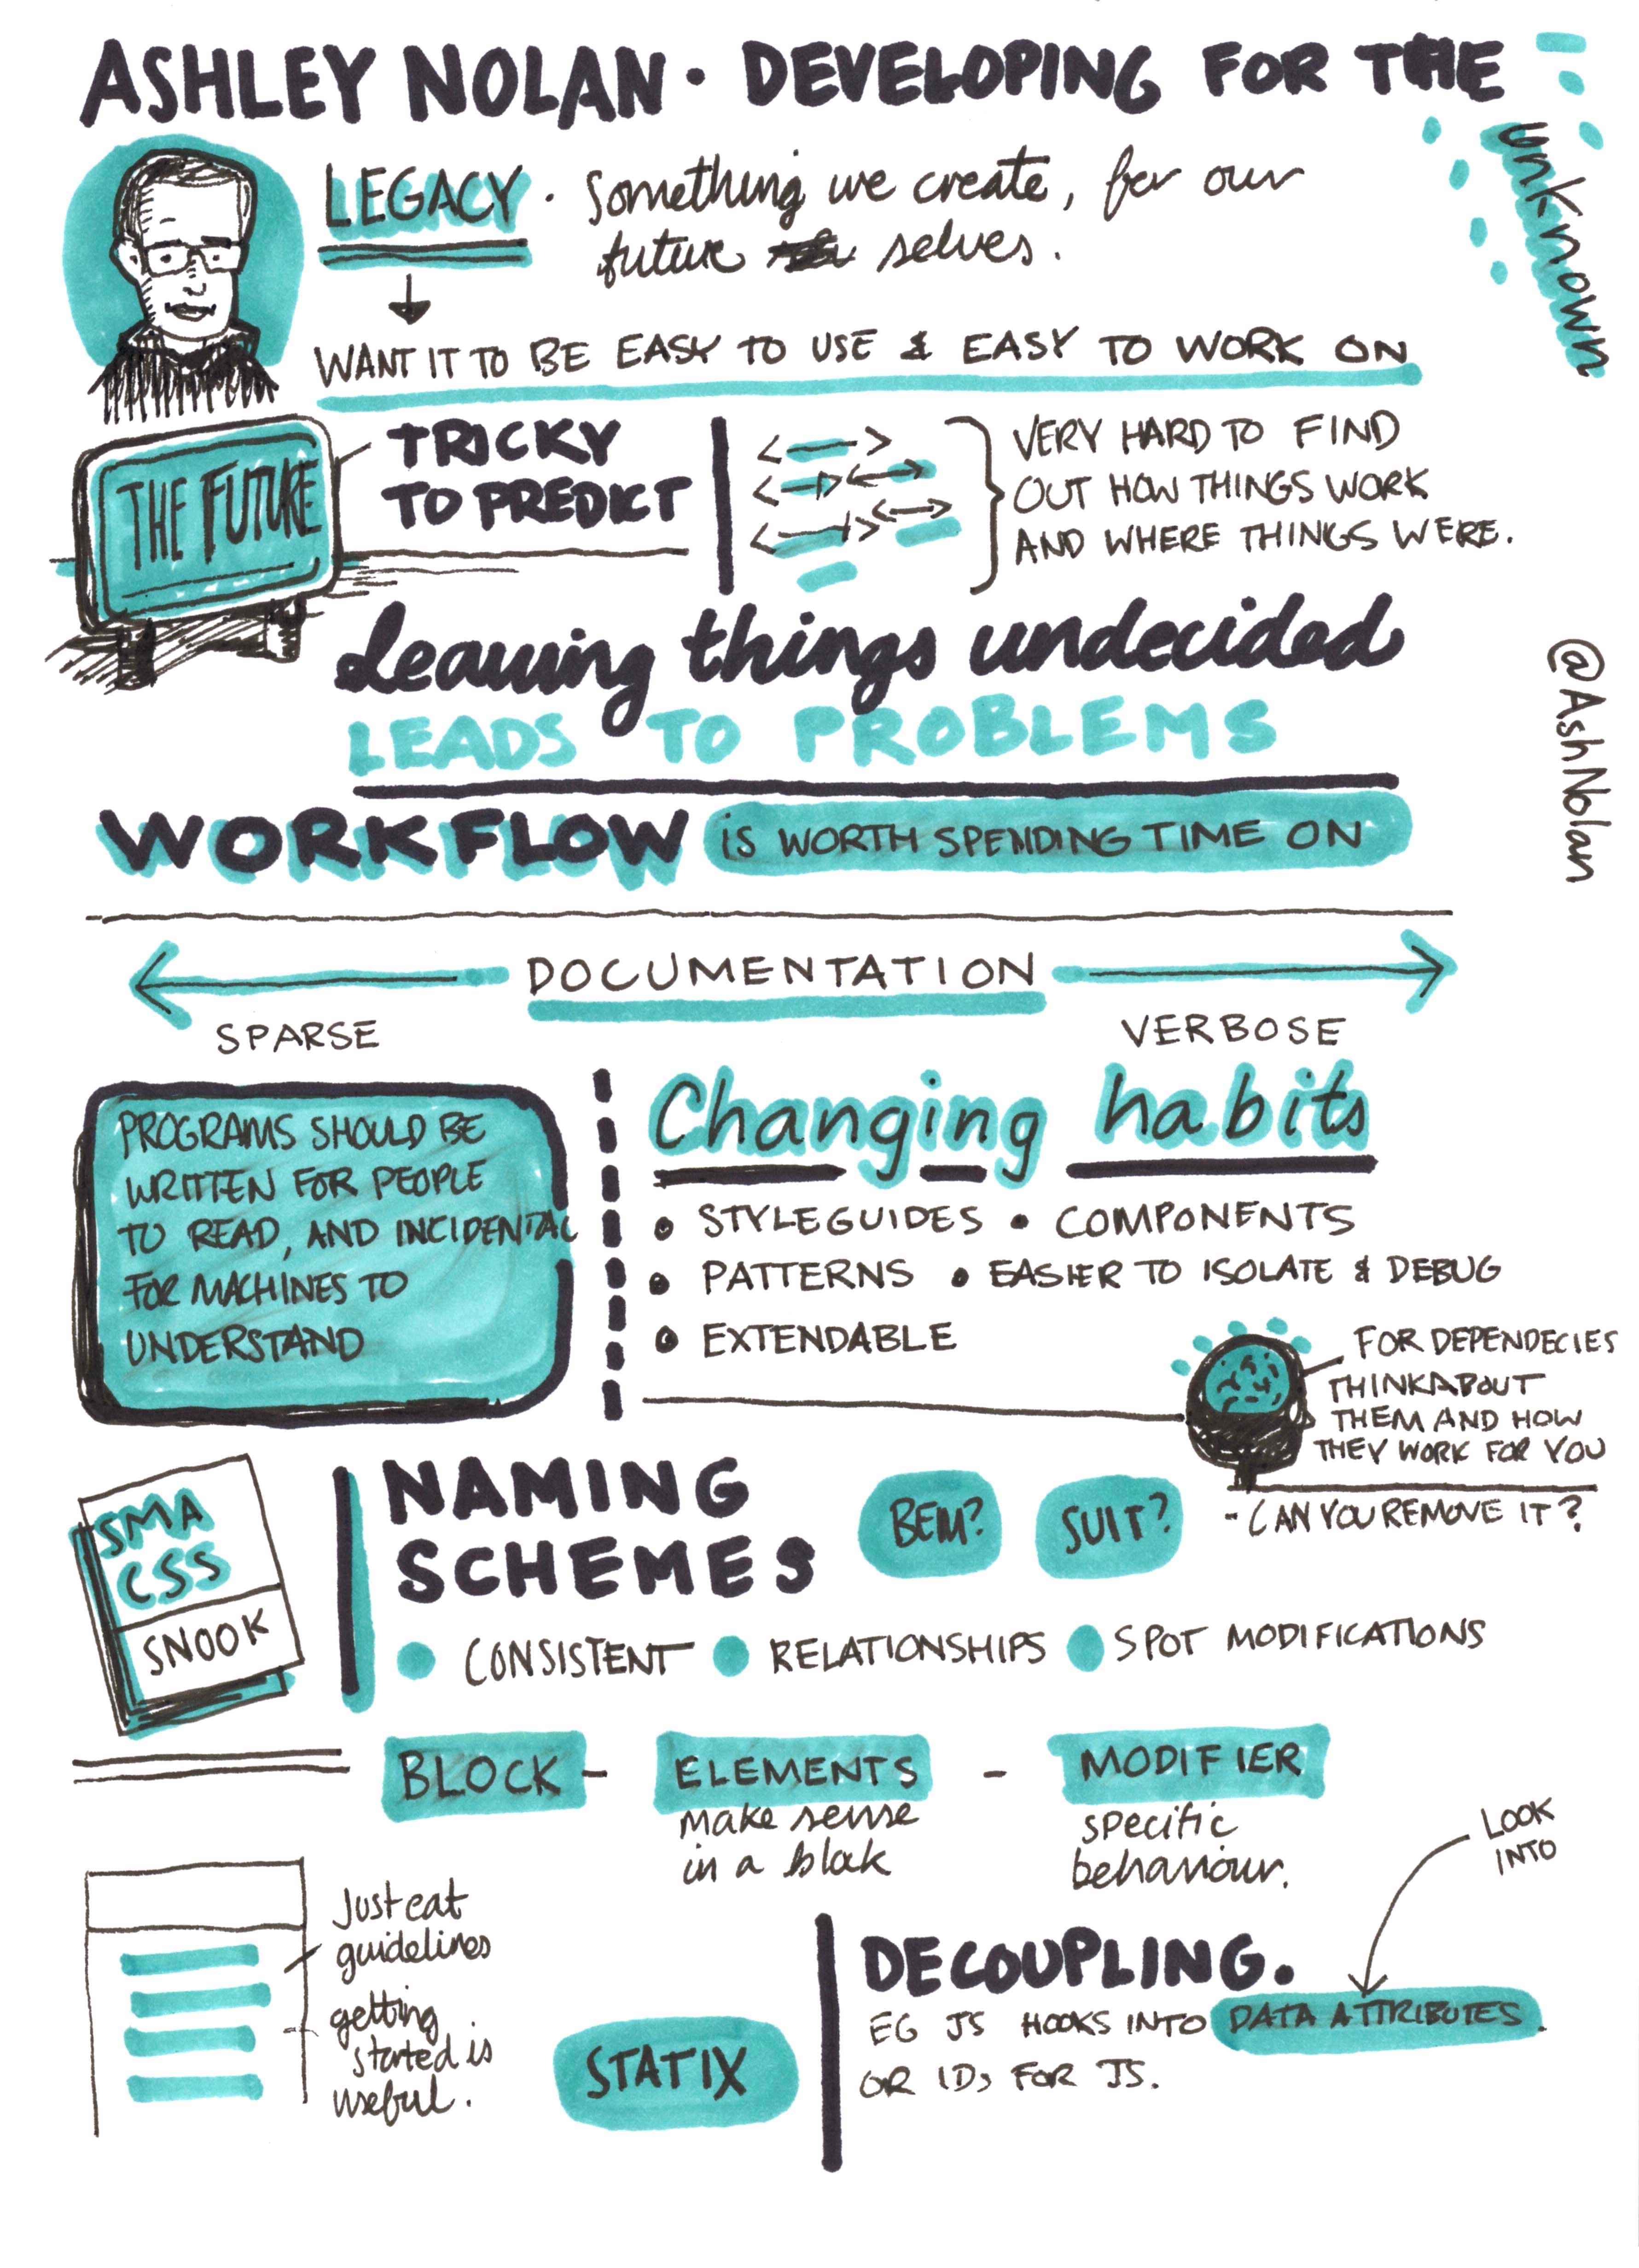 ASHLEY NOLAN · DEVELOPING FOR THE
unknown
LEGACY · Something we create, for our
future selves.
WANT IT TO BE EASY TO USE & EASY TO WORK ON
THE FUTURE
TRICKY
TO PREDICT
VERY HARD TO FIND
OUT HOW THINGS WORK
AND WHERE THINGS WERE.
Leaving things undecided
LEADS TO PROBLEMS
@AshNolan
WORKFLOW IS WORTH SPENDING TIME ON
DOCUMENTATION
SPARSE
VERBOSE
PROGRAMS SHOULD BE
WRITTEN FOR PEOPLE
TO READ, AND INCIDENTAL
FOR MACHINES TO
UNDERSTAND
Changing habits
• STYLEGUIDES • COMPONENTS
• PATTERNS • EASIER TO ISOLATE & DEBUG
• EXTENDABLE
FOR DEPENDECIES
THINK ABOUT
THEM AND HOW
THEY WORK FOR YOU
- CAN YOU REMOVE IT?
SMA
CSS
SNOOK
NAMING
SCHEMES
BEM?
SUIT?
• CONSISTENT • RELATIONSHIPS • SPOT MODIFICATIONS
BLOCK - ELEMENTS - MODIFIER
make sense
in a block
specific
behaviour.
LOOK
INTO
Just eat
guidelines
getting
started is
useful.
STATIX
DECOUPLING.
EG JS HOOKS INTO DATA ATTRIBUTES.
OR IDs FOR JS.